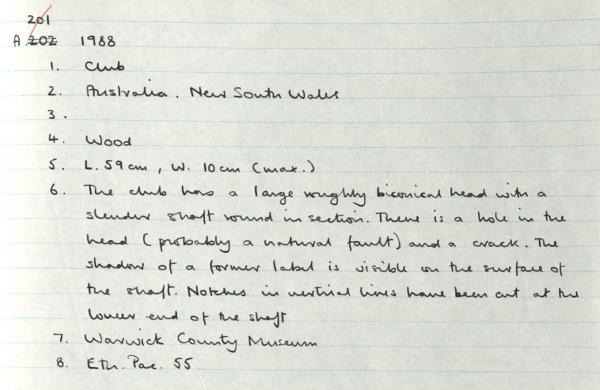 201
A.202 1988
1. Club
2. Australia. New South Wales
3.
4. Wood
5. L. 59cm, W. 10cm (max.)
6. The club has a large roughly biconical head with a
slender shaft round in section. There is a hole in the
head (probably a natural fault) and a crack. The
shadow of a former label is visible on the surface of
the shaft. Notches in vertical lines have been cut at the
lower end of the shaft
7. Warwick County Museum
8. Eth. Pac. 55